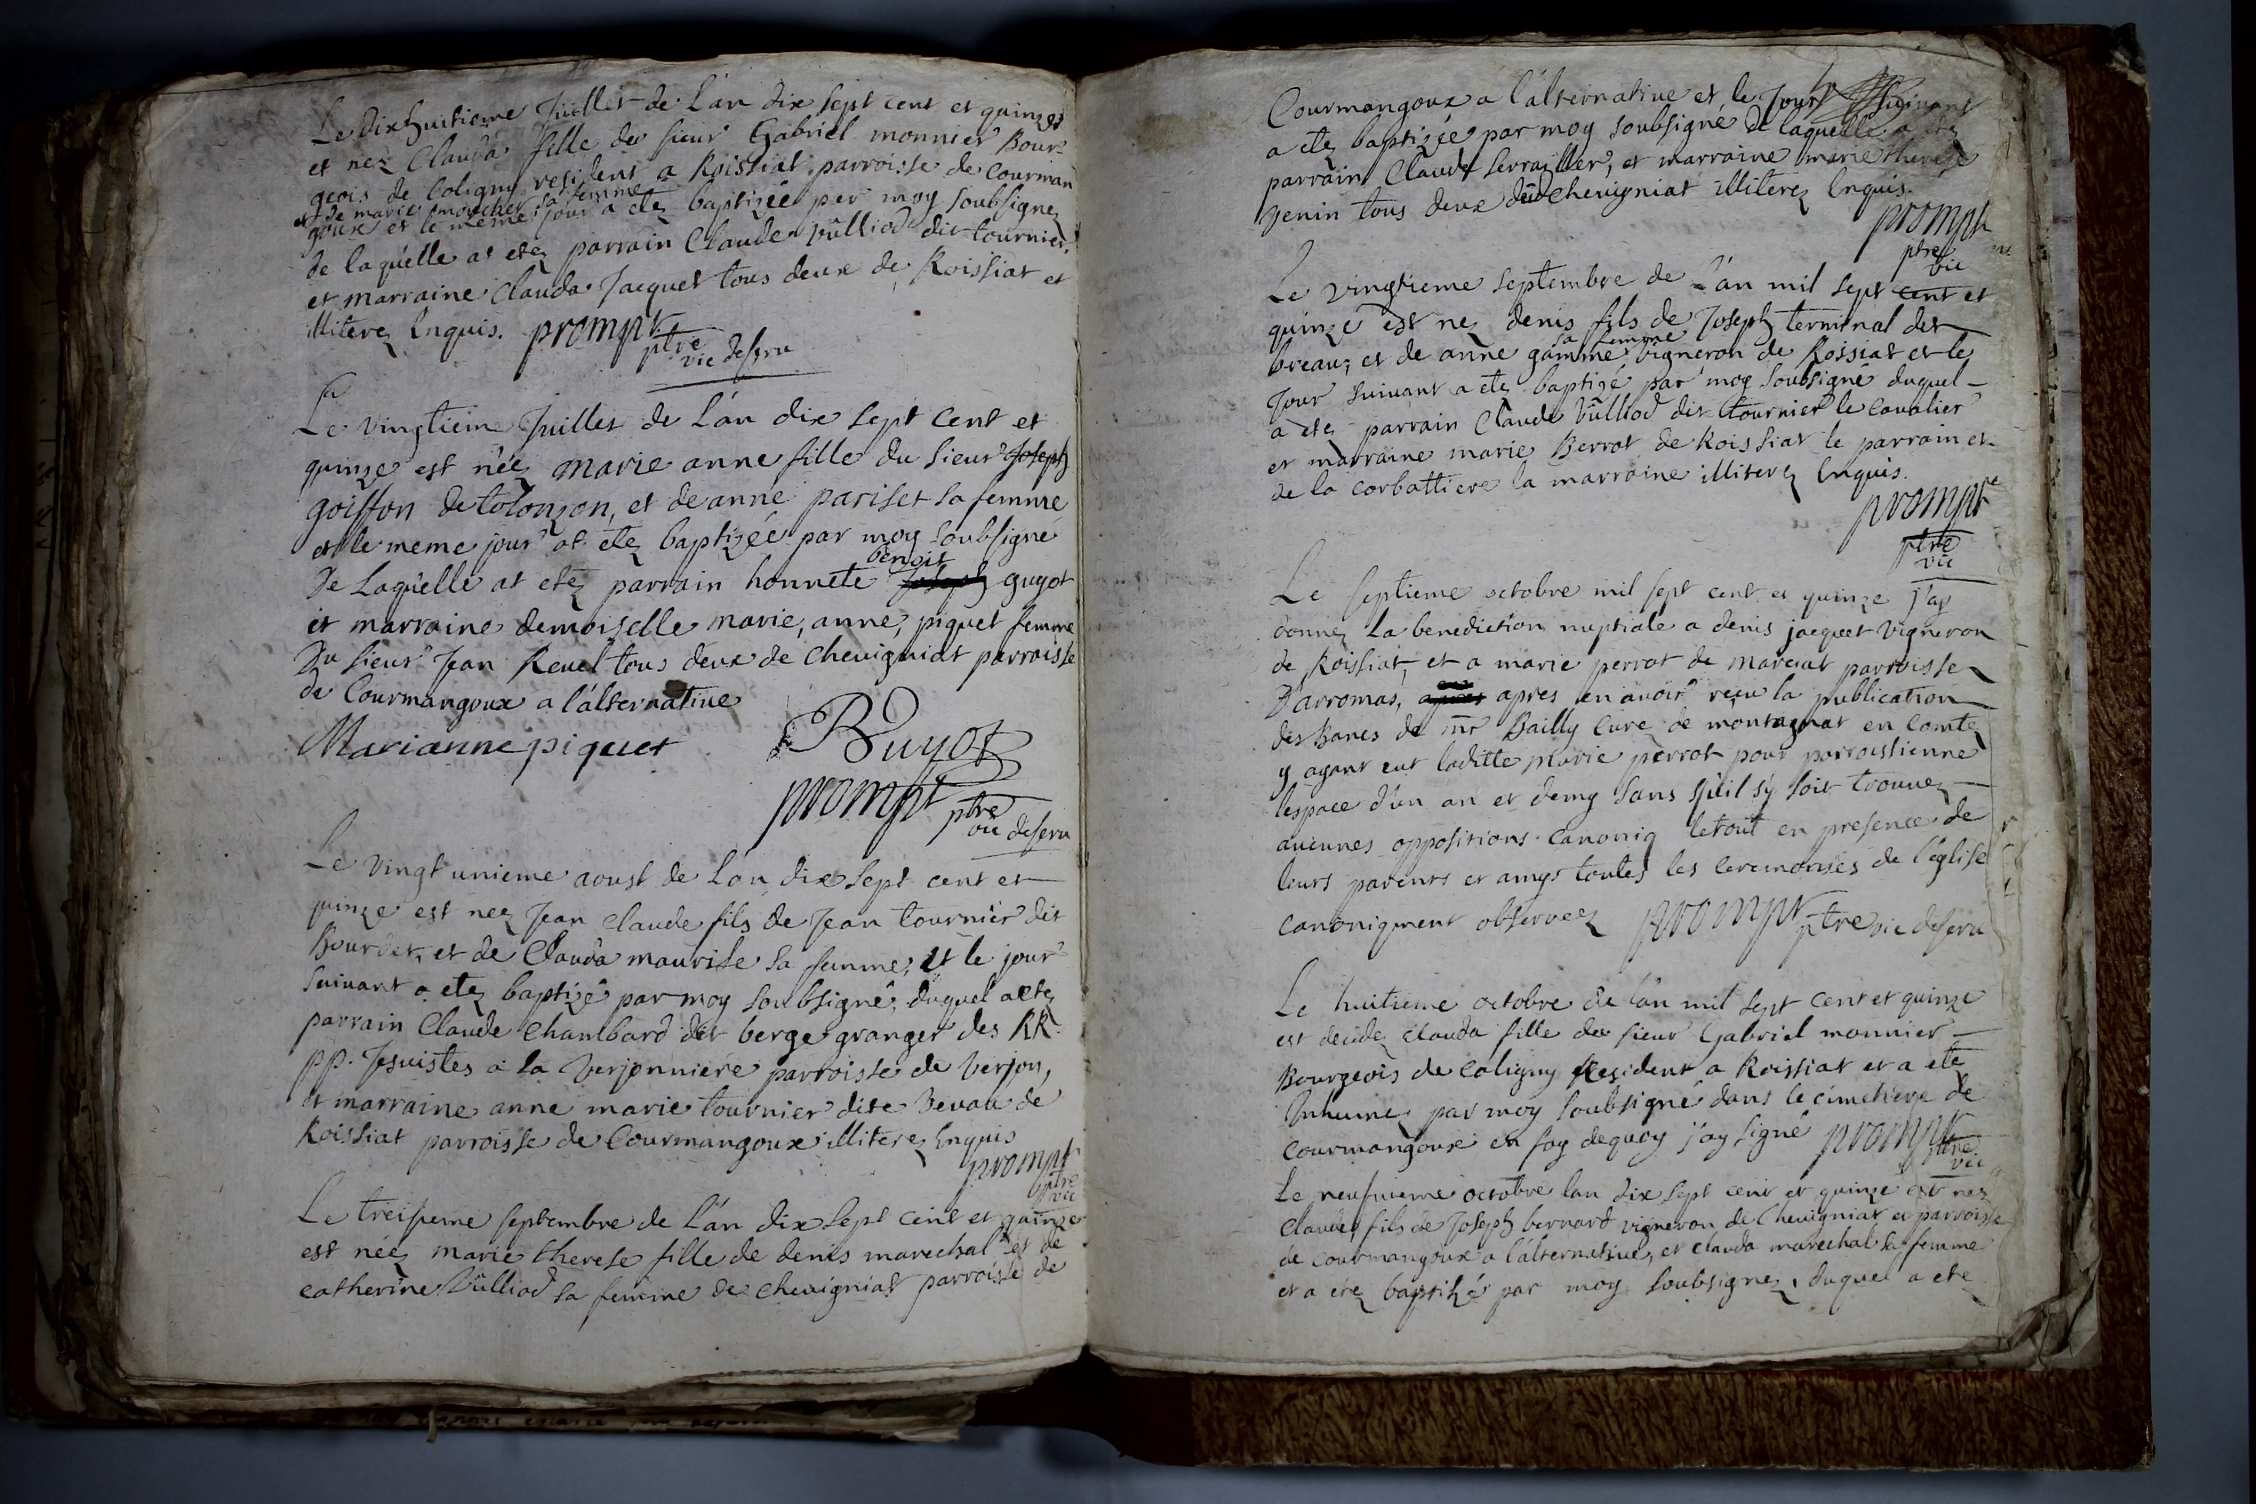 Le dixhuitieme Juillet de L'an dix sept cent et quinze
et nez Clauda fille du sieur Gabriel monnier Bour
geois de Coligny resident a Roissiat parroisse de Courman
et de marie moucher sa femme
goux et le meme jour a etez baptizée per moy soubsignez
de laquelle at etez parrain Claude Vulliod dit tournier
et marraine Clauda Jacquet tous deux de Roissiat et
illiterez Enquis. prompt
ptre
vic deseru
Le vingtieme Juillet de L'an dix sept cent et
quinze est néez marie anne fille du sieur Joseph
goiffon de tolonzon, et de anne pariset sa femme
et le meme jour at etez baptizée par moy soubsigné
De Laquelle at etez parrain honnete benoit guyot
et marraine demoiselle marie, anne, piquet femme
Du sieur Jean Reuel tous deux de cheuigniat parroisse
de Courmangoux a l'alternatiue
Marianne piquet BGuyot
prompt ptre
vic deseru
Le vingt unieme aoust de L'an dix sept cent et
quinze est nez Jean claude fils de Jean tournier dit
Bourdet, et de Clauda maurise sa femme, et le jour
suiuant a etez baptizé par moy soubsigné, duquel a etez
parrain Claude Chambard dit berge granger des RR.
pp. Jesuistes a la Verjonniere parroisse de Verjon,
et marraine anne marie tournier dite Beuau de
Roissiat parroisse de Courmangoux illiterez Enquis
prompt
ptre
vic
Le treisieme septembre de L'an dix sept cent et quinze
est néez marie therese fille de denis marechal et de
catherine Vulliod sa femme de cheuigniat parroisse de
Courmangoux a l'alternatiue et le Jour suiuant
a etez baptizée par moy soubsigné de laquelle a etez
parrain Claude Serrailler, et marraine marie therese
Zenin tous deux du cheuigniat illiterez Enquis.
prompt
ptre
vic
Le vingtieme septembre de L'an mil sept cent et
quinze est nez denis fils de Joseph terminal det
sa femme
breau, et de anne gamme vigneron de Roissiat et le
Jour suiuant a etez baptizé par moy soubsigné duquel
a etez parrain Claude Vulliod dit tournier le caualier
et marraine marie Berrot de Roissiat le parrain et
de la corbattiere la marraine illiterez Enquis.
prompt
ptre
vic
Le septieme octobre mil sept cent et quinze J'ay
donnez La benediction nuptiale a denis jacquet Vigneron
de Roissiat, et a marie perrot de marciat parroisse
D'arromas, apres en auoir reçu la publication
des Bancs de mr Bailly cure de montagnat en comte
y ayant eut laditte marie perrot pour parroissienne
lespace d'un an et demy sans qu'il sy soit trouuez
aucunes oppositions canoniq le tout en presence de
leurs parents et amys toutes les ceremonies de l'église
canoniqment obseruez prompt ptre vic deseru
Le huitieme octobre de L'an mil sept cent et quinze
est decede Clauda fille du sieur Gabriel monnier
Bourgeois de Coligny Resident a Roissiat et a ete
Inhumez par moy soubsigné dans le cimetiere de
courmangoux en foy dequoy j'ay signé prompt
ptre
vic
Le neufuieme octobre lan dix sept cent et quinze est nez
Claude, fils de Joseph bernard vigneron de Cheuigniat et parroisse
de courmangoux a l'alternatiue, et clauda marechal sa femme
et a etez baptizé par moy soubsignez, duquel a ete